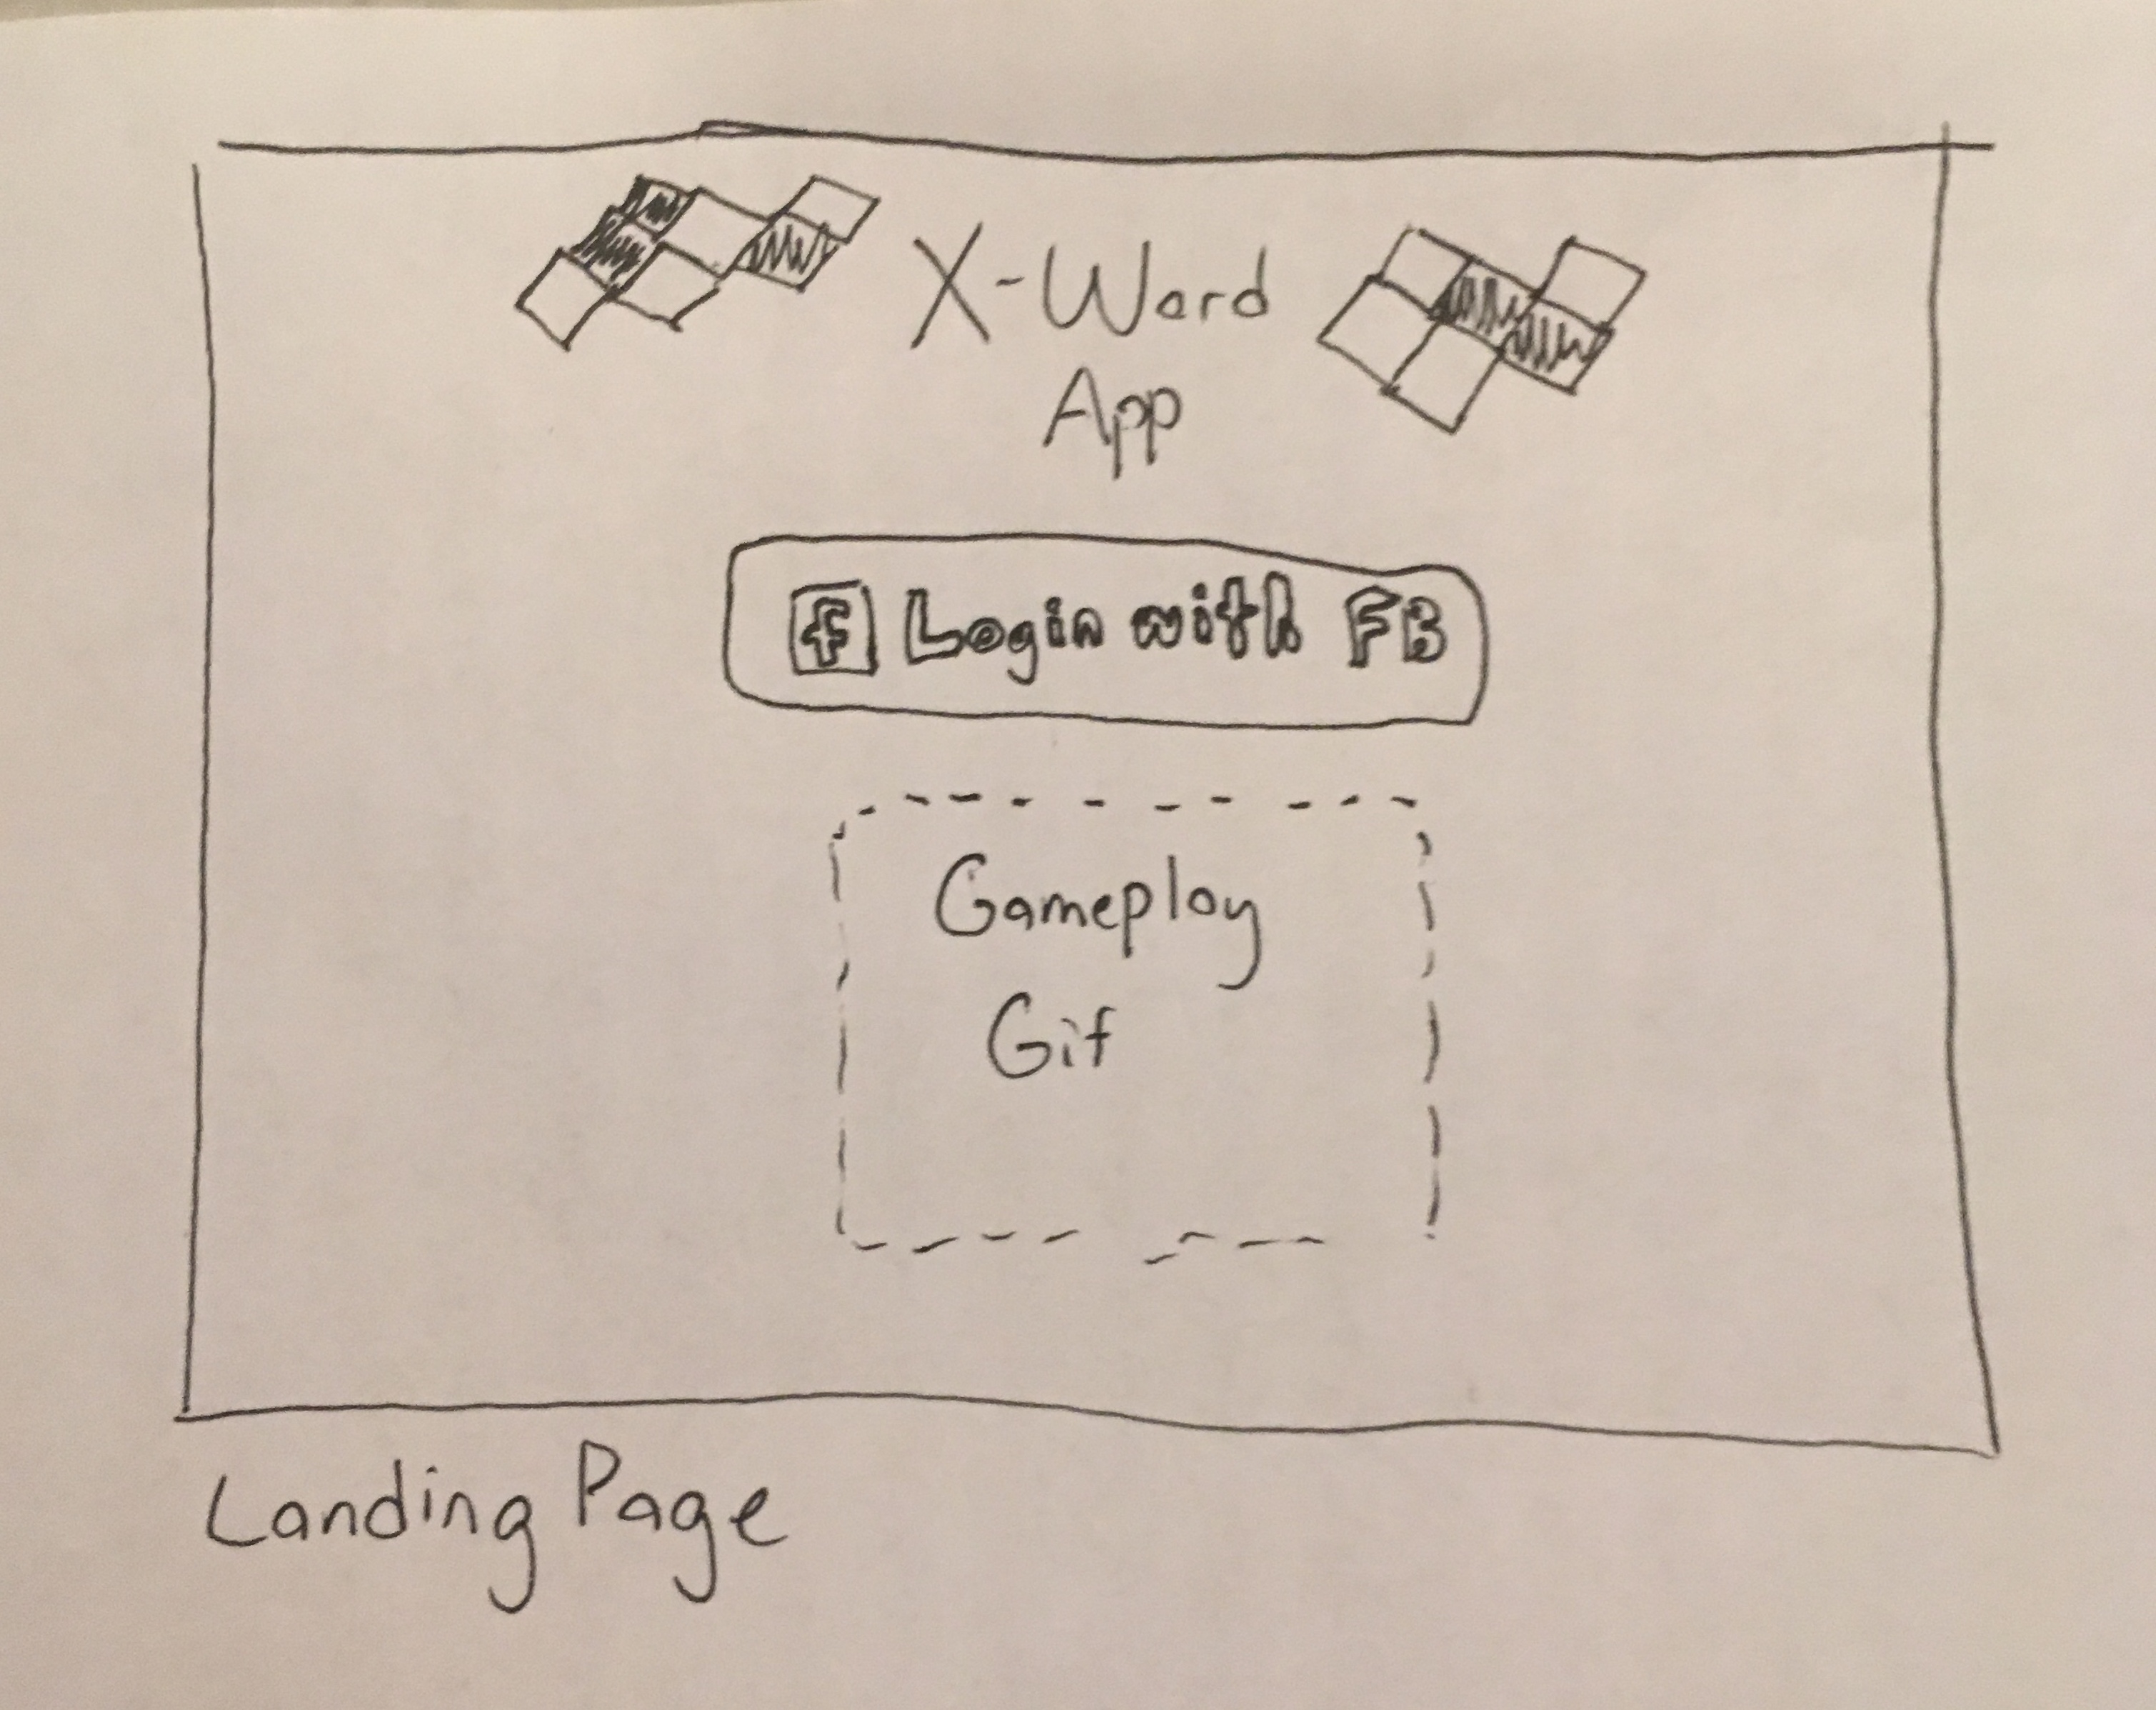 X-Word
App
f Login with FB
Gameplay
Gif
Landing Page